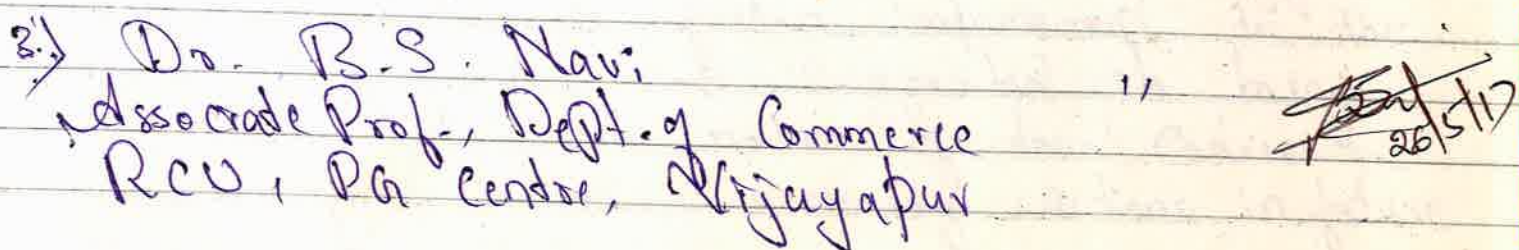 3.) Dr. B.S. Navi
Associate Prof., Dept. of Commerce " 26/5/17
RCU, PG Centre, Vijayapur